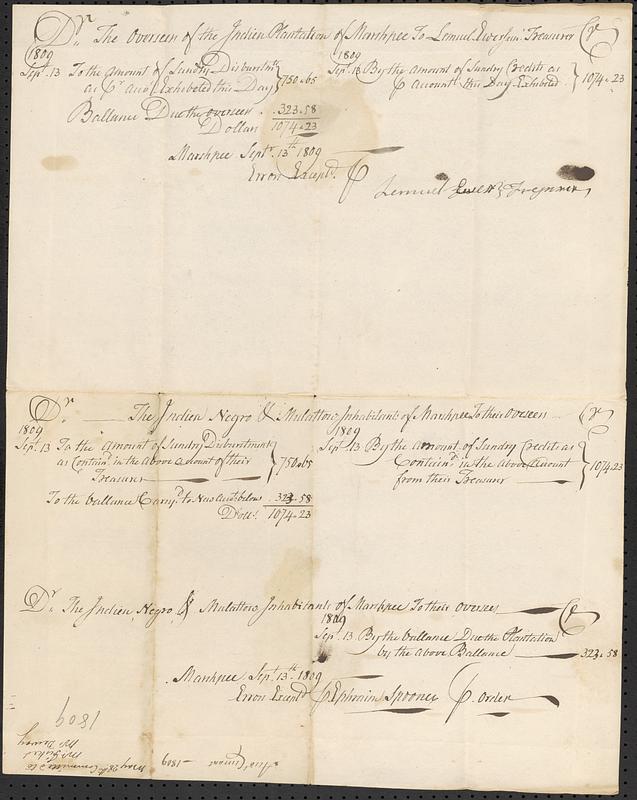 Dr. The Overseers of the Indian Plantation of Marshpee To Lemuel Ewer Junr. Treasurer Cr
1809
Sept. 13 To the Amount of Sundry Disburstmts
as Pr Acct Exhibeted this Day } 750.65
Ballance Due the overseers .. 323.58
Dollars 1074.23
1809
Sept. 13 By the Amount of Sundry Credits as
P Account this Day Exhibeted } 1074.23
Marshpee Septr. 13th 1809
Errors Exceptd. P
Lemuel Ewer Jr Treasurer
Dr. The Indian Negro & Mulattow Inhabitants of Marshpee To their Overseers Cr
1809
Sept. 13 To the amount of Sundry Disburstments
as Containd. in the above account of their
Treasurer } 750.65
To the ballance Carryd. to New Acct below 323.58
Dolls. 1074.23
1809
Sept. 13 By the Amount of Sundry Credits as
Containd. in the above Account
from their Treasurer } 1074.23
Dr. The Indian, Negro, & Mulattow Inhabitants of Marshpee To their Overseers Cr
1809
Sep. 13 By the ballance Due the Plantation
by the above Ballance 323.58
Marshpee Sep. 13th 1809
Errors Exceptd P Ephraim Spooner P. order
1809
Mr Dewey
May 28th Committed to
1809